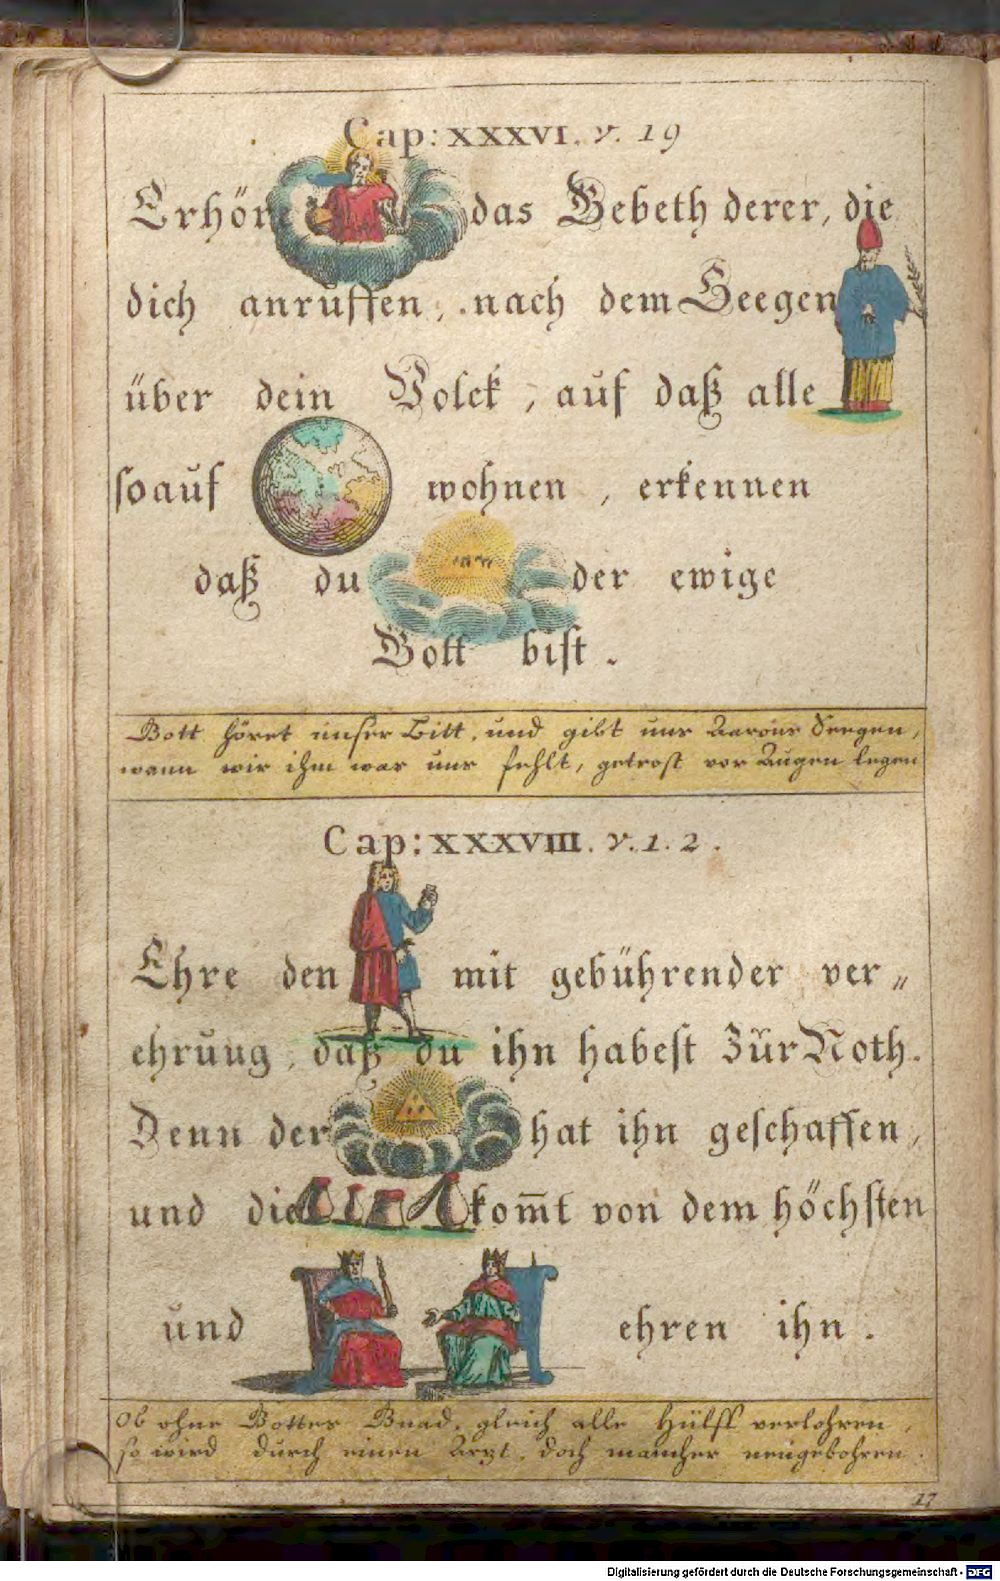 Cap: XXXVI. v. 19
Erhöre das Gebeth derer, die
dich anruffen, nach dem Seegen
über dein Volck, auf daß alle
so auf wohnen, erkennen
daß du der ewige
Gott bist.
Gott höret unser Bitt, und gibt uns Aarons Seegen,
wann wir ihm was uns fehlt, getrost vor Augen legen
Cap: XXXVIII. v. 1. 2.
Ehre den mit gebührender ver„
ehrung, daß du ihn habest Zur Noth.
Denn der hat ihn geschaffen,
und die kom̅t von dem höchsten
und ehren ihn.
Ob ohne Gottes Gnad, gleich alle Hülff verlohren,
so wird durch einen Arzt, doch mancher neugebohren.
17
Digitalisierung gefördert durch die Deutsche Forschungsgemeinschaft - DFG